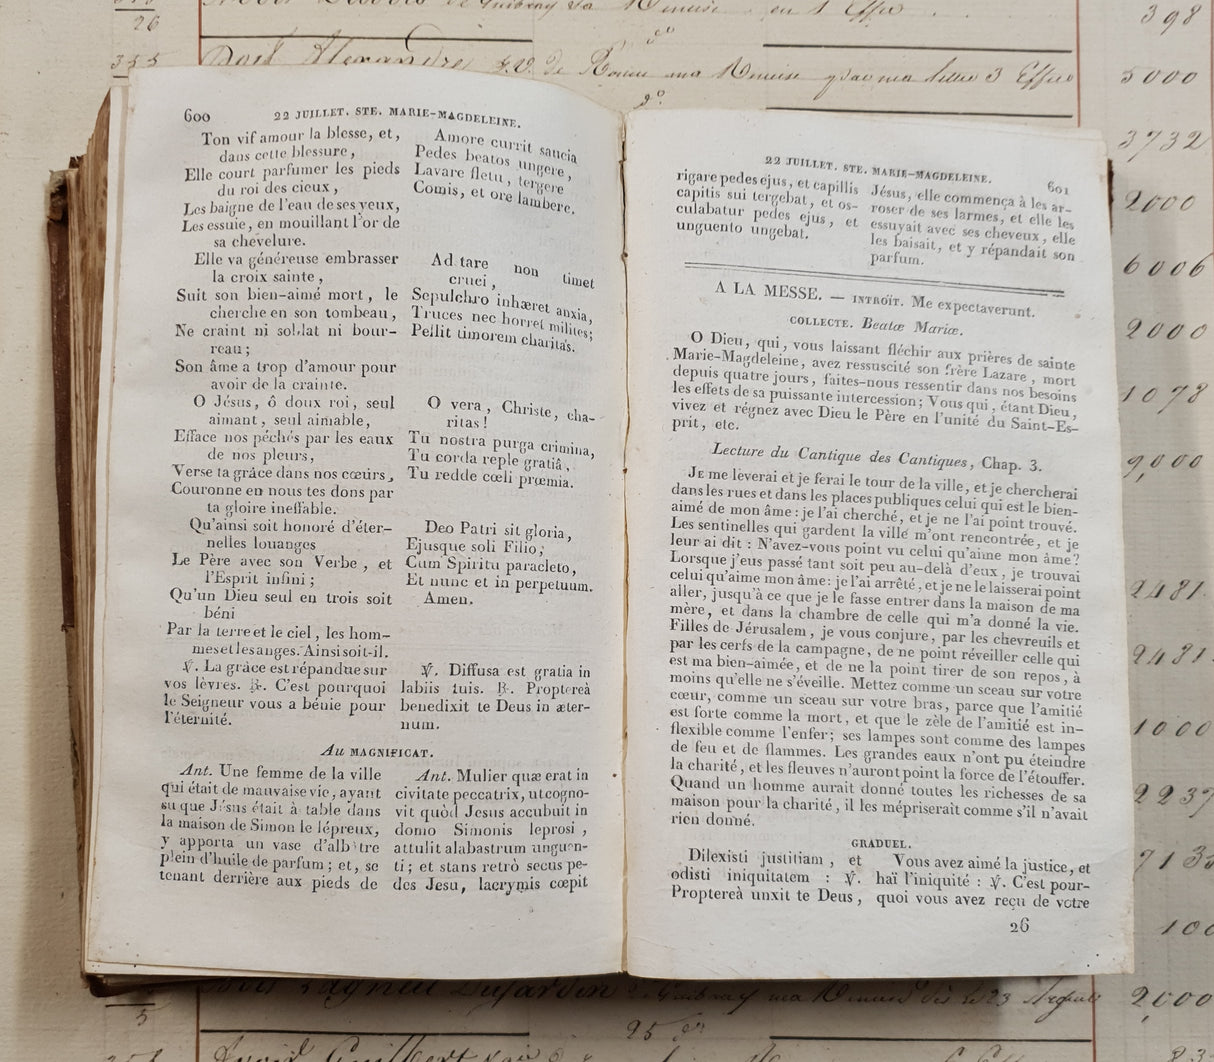 398
26
355 Doit Alexandre
5000
3732
2000
6006
2000
1078
9,000
2481
2481
1000
2237
100
2,000
5
25
600
22 JUILLET. STE. MARIE-MAGDELEINE.
Ton vif amour la blesse, et,
dans cette blessure,
Elle court parfumer les pieds
du roi des cieux,
Les baigne de l'eau de ses yeux,
Les essuie, en mouillant l'or de
sa chevelure.
Elle va généreuse embrasser
la croix sainte,
Suit son bien-aimé mort, le
cherche en son tombeau,
Ne craint ni soldat ni bour-
reau;
Son âme a trop d'amour pour
avoir de la crainte.
O Jésus, ô doux roi, seul
aimant, seul aimable,
Efface nos péchés par les eaux
de nos pleurs,
Verse ta grâce dans nos cœurs,
Couronne en nous tes dons par
ta gloire ineffable.
Qu'ainsi soit honoré d'éter-
nelles louanges
Le Père avec son Verbe, et
l'Esprit infini;
Qu'un Dieu seul en trois soit
béni
Par la terre et le ciel, les hom-
mes et les anges. Ainsi soit-il.
℣. La grâce est répandue sur
vos lèvres. ℟. C'est pourquoi
le Seigneur vous a bénie pour
l'éternité.
Amore currit saucia
Pedes beatos ungere,
Lavare fletu, tergere
Comis, et ore lambere.
Ad tare non timet
cruci,
Sepulchro inhæret anxia,
Truces nec horret milites;
Pellit timorem charitas.
O vera, Christe, cha-
ritas!
Tu nostra purga crimina,
Tu corda reple gratiâ,
Tu redde cœli præmia.
Deo Patri sit gloria,
Ejusque soli Filio,
Cum Spiritu paracleto,
Et nunc et in perpetuum.
Amen.
℣. Diffusa est gratia in
labiis tuis. ℟. Proptereà
benedixit te Deus in æter-
num.
Au MAGNIFICAT.
Ant. Une femme de la ville
qui était de mauvaise vie, ayant
su que Jésus était à table dans
la maison de Simon le lépreux,
y apporta un vase d'albâtre
plein d'huile de parfum; et, se
tenant derrière aux pieds de
Ant. Mulier quæ erat in
civitate peccatrix, ut cogno-
vit quòd Jesus accubuit in
domo Simonis leprosi,
attulit alabastrum unguen-
ti; et stans retrò secus pe-
des Jesu, lacrymis cœpit
22 JUILLET. STE. MARIE-MAGDELEINE.
601
rigare pedes ejus, et capillis
capitis sui tergebat, et os-
culabatur pedes ejus, et
unguento ungebat.
Jésus, elle commença à les ar-
roser de ses larmes, et elle les
essuyait avec ses cheveux, elle
les baisait, et y répandait son
parfum.
A LA MESSE. — INTROÏT. Me expectaverunt.
COLLECTE. Beatæ Mariæ.
O Dieu, qui, vous laissant fléchir aux prières de sainte
Marie-Magdeleine, avez ressuscité son frère Lazare, mort
depuis quatre jours, faites-nous ressentir dans nos besoins
les effets de sa puissante intercession; Vous qui, étant Dieu,
vivez et régnez avec Dieu le Père en l'unité du Saint-Es-
prit, etc.
Lecture du Cantique des Cantiques, Chap. 3.
JE me lèverai et je ferai le tour de la ville, et je chercherai
dans les rues et dans les places publiques celui qui est le bien-
aimé de mon âme: je l'ai cherché, et je ne l'ai point trouvé.
Les sentinelles qui gardent la ville m'ont rencontrée, et je
leur ai dit: N'avez-vous point vu celui qu'aime mon âme?
Lorsque j'eus passé tant soit peu au-delà d'eux, je trouvai
celui qu'aime mon âme: je l'ai arrêté, et je ne le laisserai point
aller, jusqu'à ce que je le fasse entrer dans la maison de ma
mère, et dans la chambre de celle qui m'a donné la vie.
Filles de Jérusalem, je vous conjure, par les chevreuils et
par les cerfs de la campagne, de ne point réveiller celle qui
est ma bien-aimée, et de ne la point tirer de son repos, à
moins qu'elle ne s'éveille. Mettez comme un sceau sur votre
cœur, comme un sceau sur votre bras, parce que l'amitié
est forte comme la mort, et que le zèle de l'amitié est in-
flexible comme l'enfer; ses lampes sont comme des lampes
de feu et de flammes. Les grandes eaux n'ont pu éteindre
la charité, et les fleuves n'auront point la force de l'étouffer.
Quand un homme aurait donné toutes les richesses de sa
maison pour la charité, il les mépriserait comme s'il n'avait
rien donné.
GRADUEL.
Dilexisti justitiam, et
odisti iniquitatem: ℣.
Proptereà unxit te Deus,
Vous avez aimé la justice, et
haï l'iniquité: ℣. C'est pour-
quoi vous avez reçu de votre
26